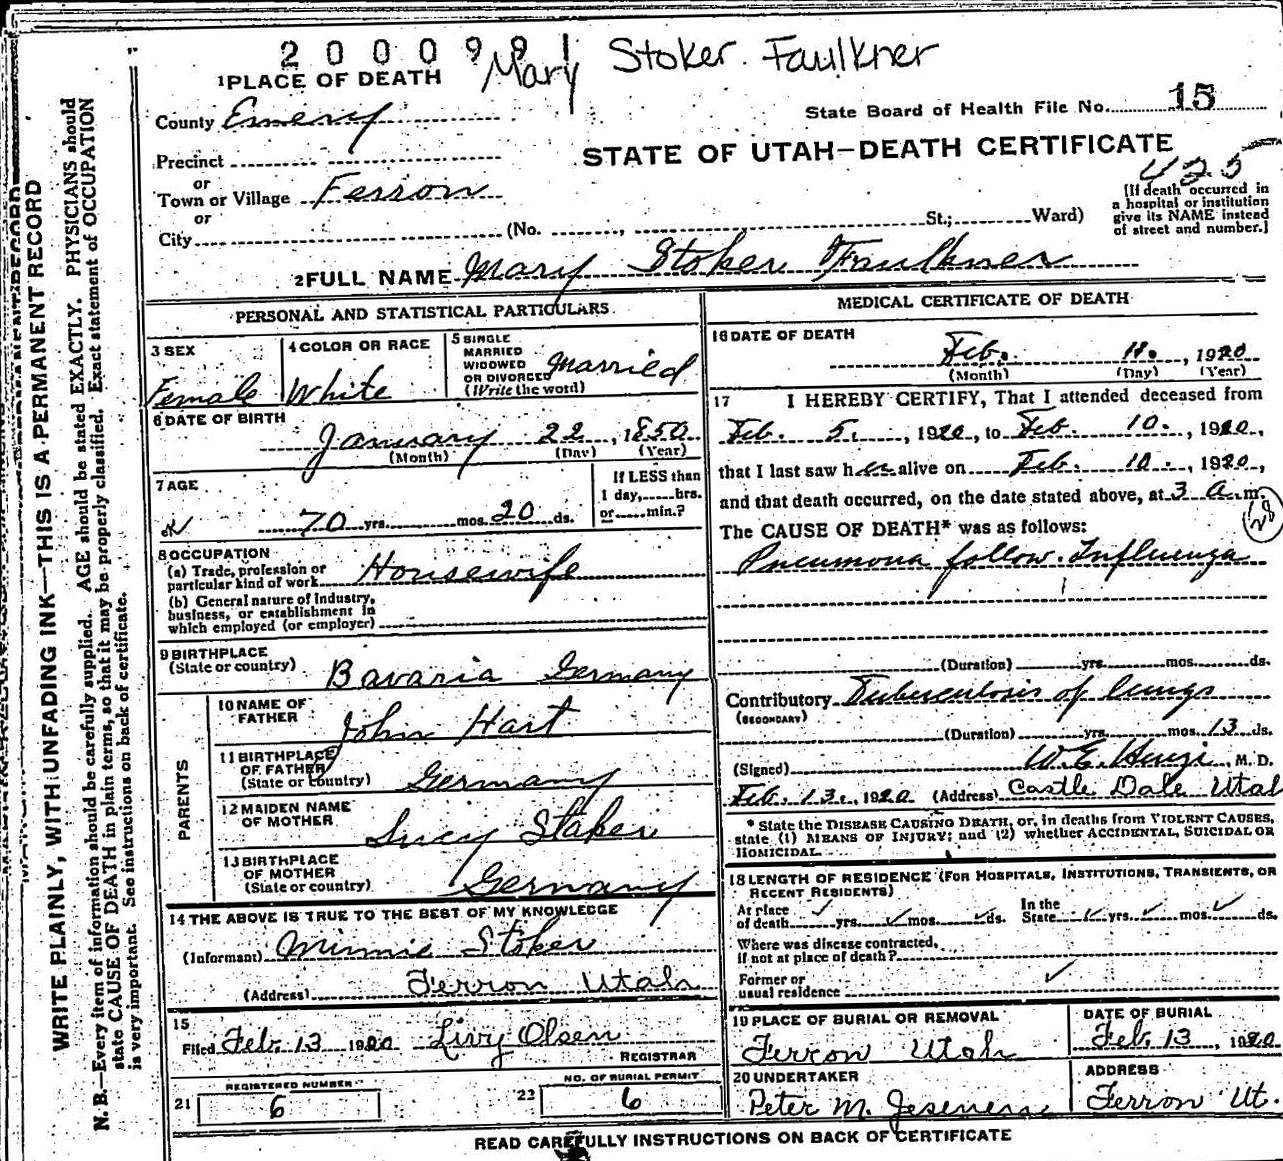 2000981
Mary Stoker Faulkner
1 PLACE OF DEATH
State Board of Health File No. 15
County Emery
STATE OF UTAH—DEATH CERTIFICATE
Precinct
425
or
Town or Village Ferron
[If death occurred in
a hospital or institution
give its NAME instead
of street and number.]
or
City (No. , St.; Ward)
2 FULL NAME Mary Stoker Faulkner
PERSONAL AND STATISTICAL PARTICULARS
3 SEX
Female
4 COLOR OR RACE
White
5 SINGLE
MARRIED
WIDOWED
OR DIVORCED
(Write the word)
Married
6 DATE OF BIRTH
January 22, 1850
(Month) (Day) (Year)
7 AGE
70 yrs. mos. 20 ds.
If LESS than
1 day, hrs.
or min.?
8 OCCUPATION
(a) Trade, profession or
particular kind of work Housewife
(b) General nature of industry,
business, or establishment in
which employed (or employer)
9 BIRTHPLACE
(State or country) Bavaria Germany
PARENTS
10 NAME OF
FATHER John Hart
11 BIRTHPLACE
OF FATHER
(State or country) Germany
12 MAIDEN NAME
OF MOTHER Lucy Stoker
13 BIRTHPLACE
OF MOTHER
(State or country) Germany
14 THE ABOVE IS TRUE TO THE BEST OF MY KNOWLEDGE
(Informant) Minnie Stoker
(Address) Ferron Utah
15
Filed Feb. 13 1920 Livy Olsen
REGISTRAR
21 REGISTERED NUMBER
6
22 NO. OF BURIAL PERMIT
6
MEDICAL CERTIFICATE OF DEATH
16 DATE OF DEATH
Feb. 11, 1920
(Month) (Day) (Year)
17 I HEREBY CERTIFY, That I attended deceased from
Feb. 5, 1920, to Feb. 10, 1920,
that I last saw her alive on Feb. 10, 1920,
and that death occurred, on the date stated above, at 3 a.m.
28
The CAUSE OF DEATH* was as follows:
Pneumona follow. Influenza
(Duration) yrs. mos. ds.
Contributory Tuberculosis of lungs
(SECONDARY)
(Duration) yrs. mos. 13 ds.
(Signed) W.E. , M.D.
Feb. 13, 1920 (Address) Castle Dale Utah
* State the DISEASE CAUSING DEATH, or, in deaths from VIOLENT CAUSES,
state (1) MEANS OF INJURY; and (2) whether ACCIDENTAL, SUICIDAL OR
HOMICIDAL.
18 LENGTH OF RESIDENCE (FOR HOSPITALS, INSTITUTIONS, TRANSIENTS, OR
RECENT RESIDENTS)
At place
of death yrs. mos. ds. In the
State yrs. mos. ds.
Where was disease contracted,
if not at place of death?
Former or
usual residence
19 PLACE OF BURIAL OR REMOVAL
Ferron Utah
DATE OF BURIAL
Feb. 13, 1920
20 UNDERTAKER
Peter M.
ADDRESS
Ferron Ut.
READ CAREFULLY INSTRUCTIONS ON BACK OF CERTIFICATE
WRITE PLAINLY, WITH UNFADING INK—THIS IS A PERMANENT RECORD
N. B.—Every item of information should be carefully supplied. AGE should be stated EXACTLY. PHYSICIANS should
state CAUSE OF DEATH in plain terms, so that it may be properly classified. Exact statement of OCCUPATION
is very important. See instructions on back of certificate.